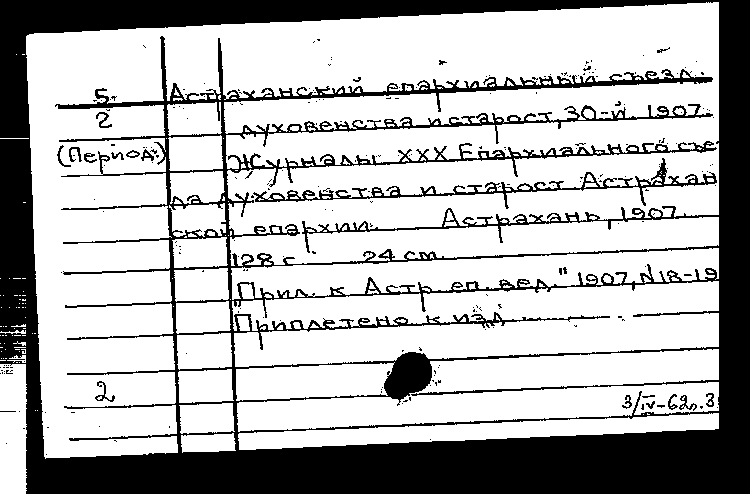 5. Астраханский епархиальный съезд
2 духовенства и старост, 30-й. 1907.
(Период.) Журналы XXX Епархиального съе-
да духовенства и старост Астрахан
ской епархии. Астрахань, 1907.
128 с. 24 см.
"Прил. к Астр. еп. вед." 1907, N 18-19
Приплетено к изд
2
3/IV-62г. 3